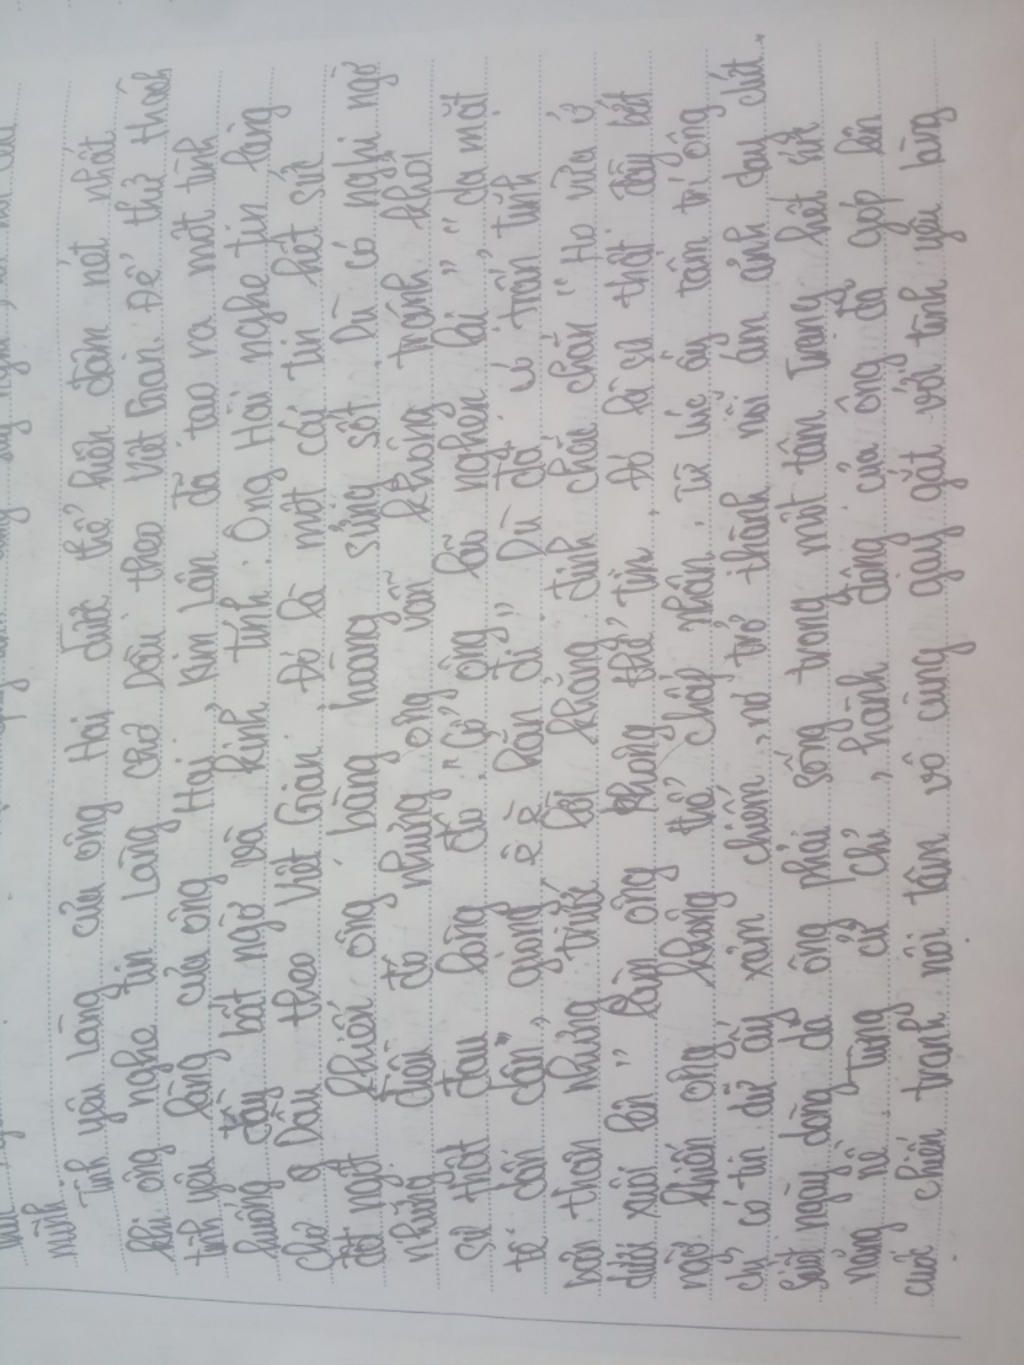 mình.
Tình yêu làng của ông Hai được thể hiện đậm nét nhất
khi ông nghe tin làng chợ Dầu theo Việt gian. Để thử thách
tình yêu làng của ông Hai, Kim Lân đã tạo ra một tình
huống đầy bất ngờ và kịch tính: Ông Hai nghe tin làng
Chợ Dầu theo Việt Gian. Đó là một cái tin hết sức
đột ngột khiến ông bàng hoàng sửng sốt. Dù có nghi ngờ
những điều đó nhưng ông vẫn không tránh khỏi
sự thật đau lòng đó. "Cổ ông lão nghẹn lại", "da mặt
tê dân dân", giọng lạc hẳn đi". Dù đã cố trấn tĩnh
bản thân nhưng trước lời khẳng định chắc chắn "Họ vừa ở
dưới xuôi lên" làm ông không thể tin. Đó là sự thật đầy bất
ngờ khiến ông không thể chấp nhận. Từ lúc ấy tâm trí ông
chỉ có tin dữ ấy xâm chiếm, nó trở thành nỗi ám ảnh day dứt.
Suốt ngày dòng dã ông phải sống trong một tâm trạng hết sức
nặng nề. Từng cử chỉ, hành động của ông đã góp lên
cuộc chiến tranh nội tâm vô cùng gay gắt với tình yêu làng